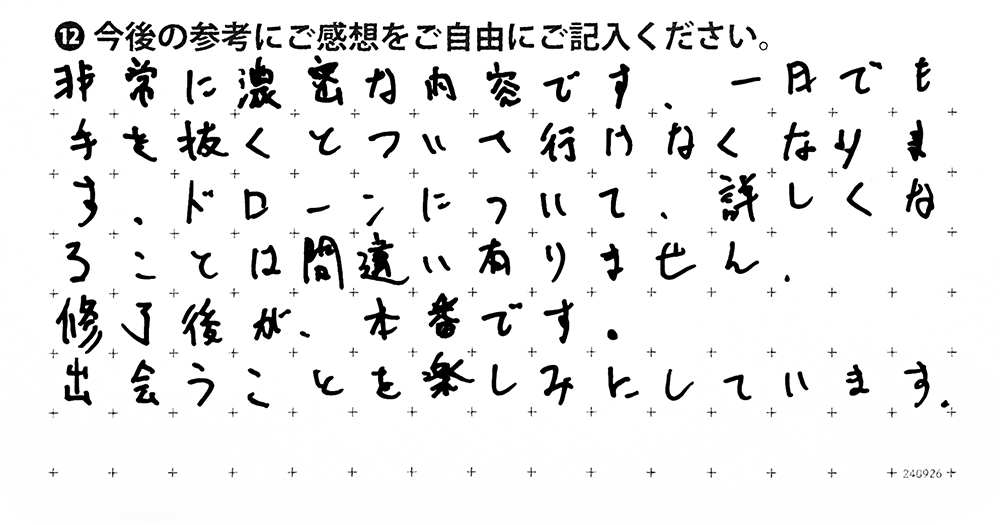 ⓬今後の参考にご感想をご自由にご記入ください。
非常に濃密な内容です。一日でも
手を抜くとついて行けなくなりま
す。ドローンについて、詳しくな
ることは間違い有りません。
修了後が、本番です。
出会うことを楽しみにしています。
240926